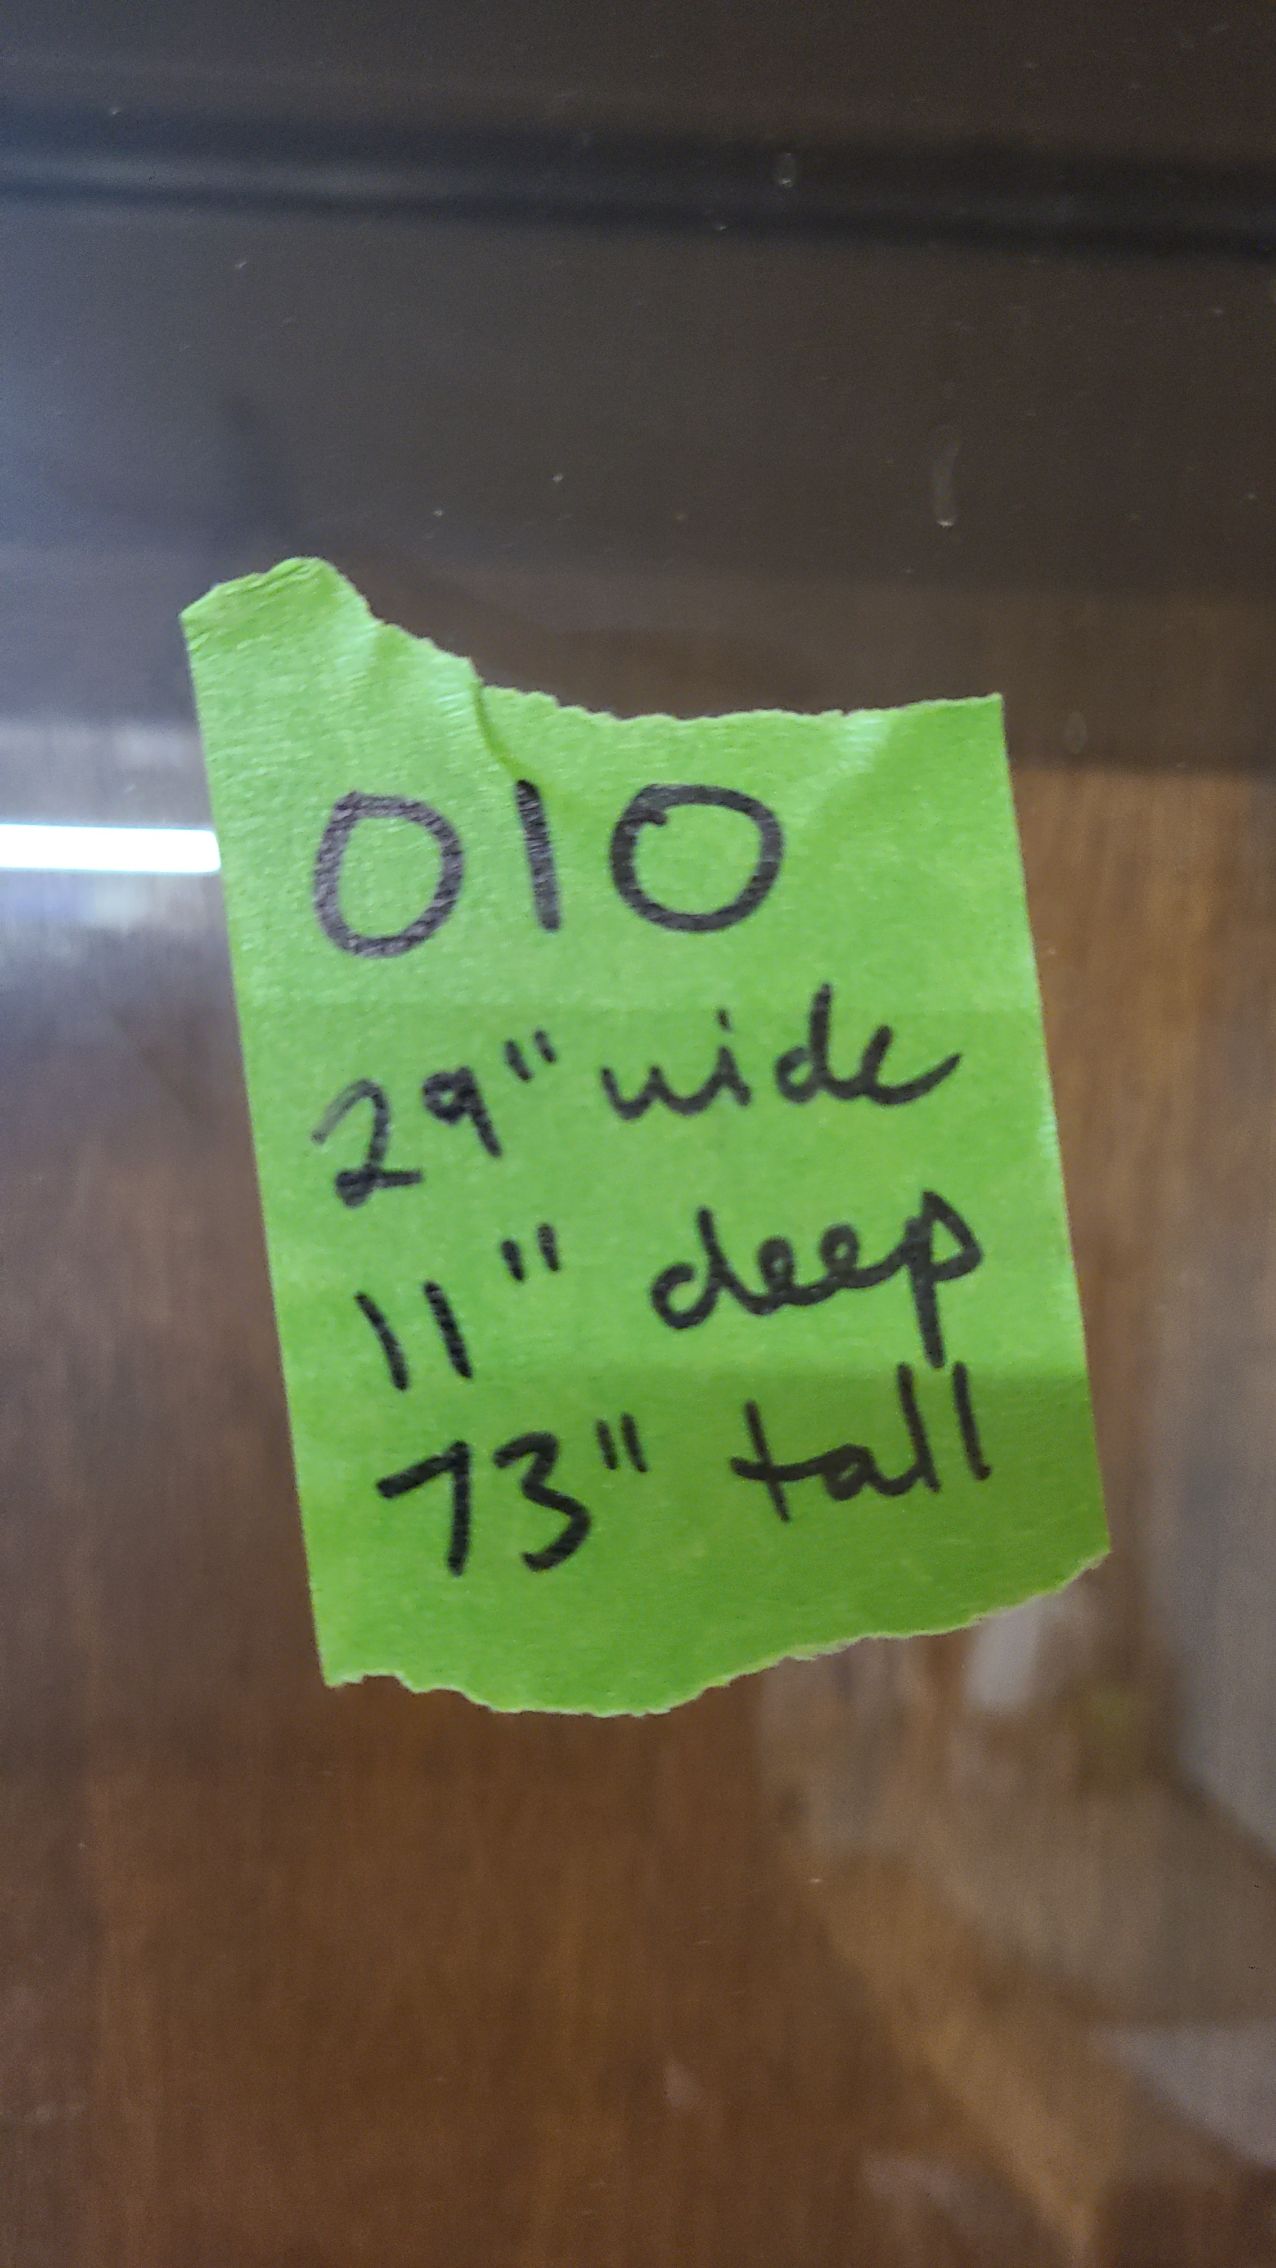 010
29" wide
11" deep
73" tall